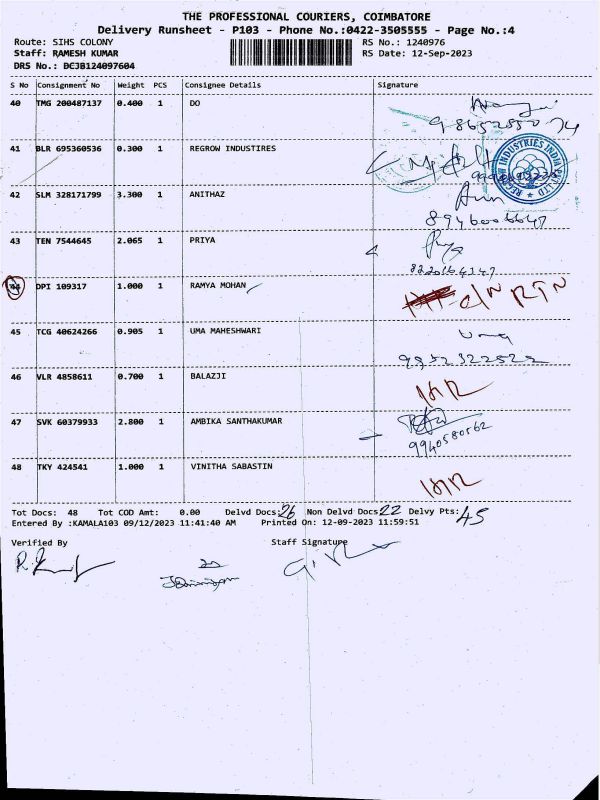 THE PROFESSIONAL COURIERS, COIMBATORE
Delivery Runsheet - P103 - Phone No.:0422-3505555 - Page No.:4
Route: SIHS COLONY RS No.: 1240976
Staff: RAMESH KUMAR RS Date: 12-Sep-2023
DRS No.: DCJB124097604
S No Consignment No Weight PCS Consignee Details Signature
40 TMG 200487137 0.400 1 DO
41 BLR 695360536 0.300 1 REGROW INDUSTIRES
REGROW INDUSTRIES INDIA PVT LTD
42 SLM 328171799 3.300 1 ANITHAZ
Arun
8946006647
43 TEN 7544645 2.065 1 PRIYA
Priya
8220164147
44 DPI 109317 1.000 1 RAMYA MOHAN
RTN
45 TCG 40624266 0.905 1 UMA MAHESHWARI
Uma
9852322522
46 VLR 4858611 0.700 1 BALAZJI
47 SVK 60379933 2.800 1 AMBIKA SANTHAKUMAR
9940580562
48 TKY 424541 1.000 1 VINITHA SABASTIN
Tot Docs: 48 Tot COD Amt: 0.00 Delvd Docs: 26 Non Delvd Docs 22 Delvy Pts: 45
Entered By :KAMALA103 09/12/2023 11:41:40 AM Printed On: 12-09-2023 11:59:51
Verified By Staff Signature